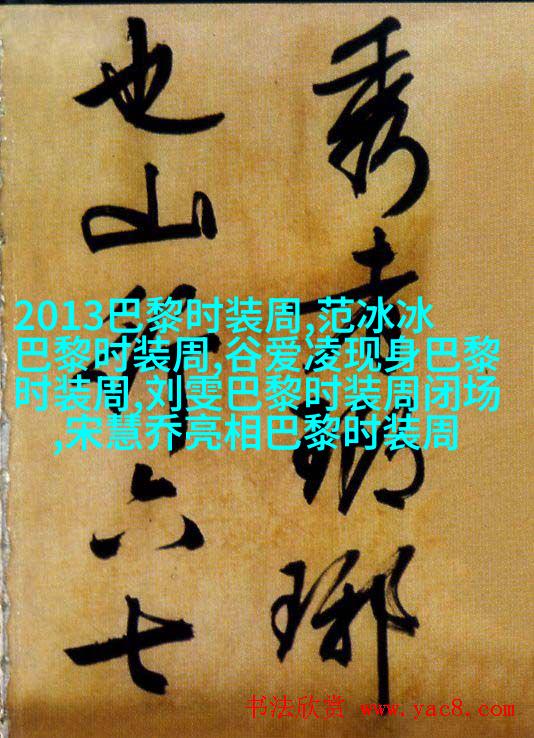 秀者瑯琊
也山行六七
2013巴黎时装周,范冰冰
巴黎时装周,谷爱凌现身巴黎
时装周,刘雯巴黎时装周闭场
,宋慧乔亮相巴黎时装周
书法欣赏 www.yac8.com